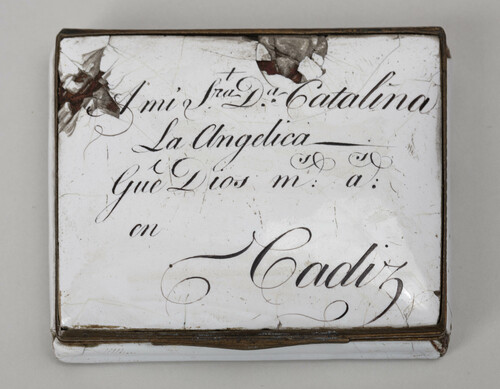 A mi Sra. Da. Catalina
La Angelica
Gue Dios ms. as.
en
Cadiz